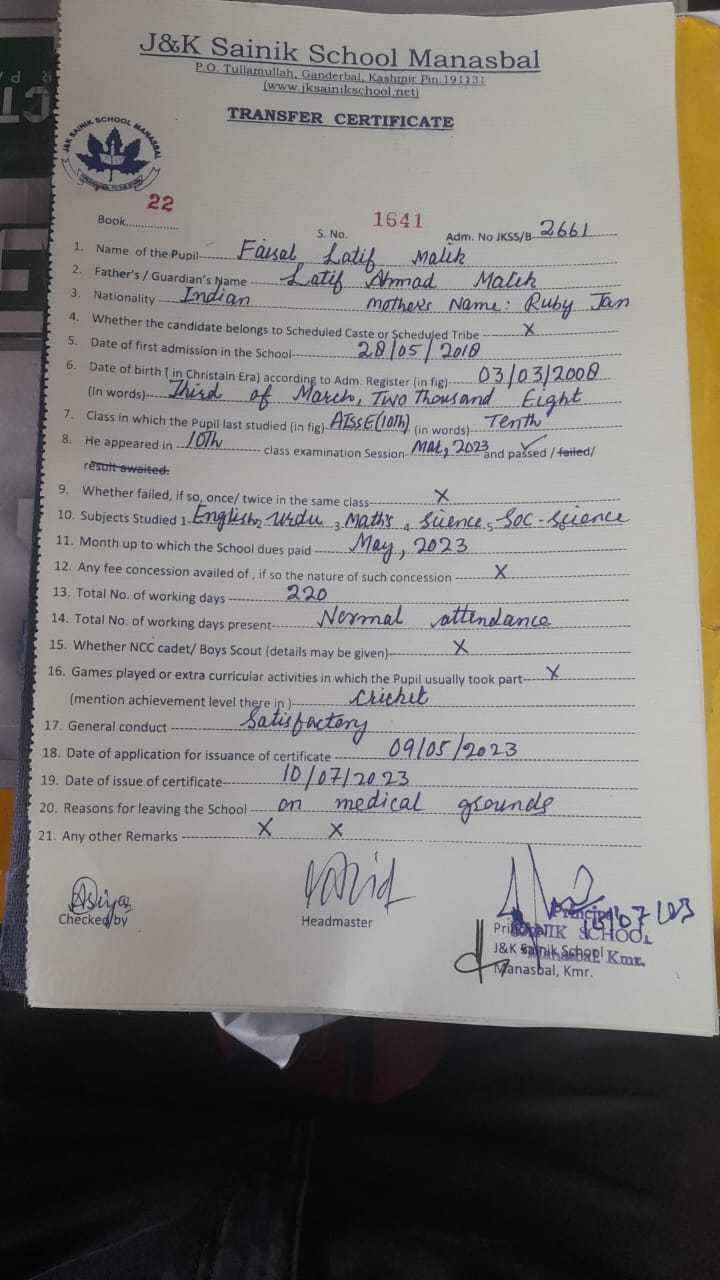 J&K Sainik School Manasbal
P.O. Tullamullah, Ganderbal, Kashmir Pin.191131
(www.jksainikschool.net)
TRANSFER CERTIFICATE
J&K SAINIK SCHOOL MANASBAL
Book................ 22
S. No. 1641
Adm. No JKSS/B 2661
1. Name of the Pupil Faisal Latif Malik
2. Father's / Guardian's Name Latif Ahmad Malik
3. Nationality Indian Mother's Name: Ruby Jan
4. Whether the candidate belongs to Scheduled Caste or Scheduled Tribe X
5. Date of first admission in the School 28/05/2018
6. Date of birth ( in Christain Era) according to Adm. Register (in fig) 03/03/2008
(In words) Third of March, Two Thousand Eight
7. Class in which the Pupil last studied (in fig) AISSE(10th) (in words) Tenth
8. He appeared in 10th class examination Session Mar, 2023 and passed / failed/
result awaited.
9. Whether failed, if so, once/ twice in the same class X
10. Subjects Studied 1 English 2 Urdu 3 Maths 4 Science 5 Soc-Science
11. Month up to which the School dues paid May, 2023
12. Any fee concession availed of , if so the nature of such concession X
13. Total No. of working days 220
14. Total No. of working days present Normal attendance
15. Whether NCC cadet/ Boys Scout (details may be given) X
16. Games played or extra curricular activities in which the Pupil usually took part X
(mention achievement level there in ) Cricket
17. General conduct Satisfactory
18. Date of application for issuance of certificate 09/05/2023
19. Date of issue of certificate 10/07/2023
20. Reasons for leaving the School on medical grounds
21. Any other Remarks X X
Asiya
Checked by
Headmaster
Principal
SAINIK SCHOOL
J&K Sainik School
Manasbal, Kmr.